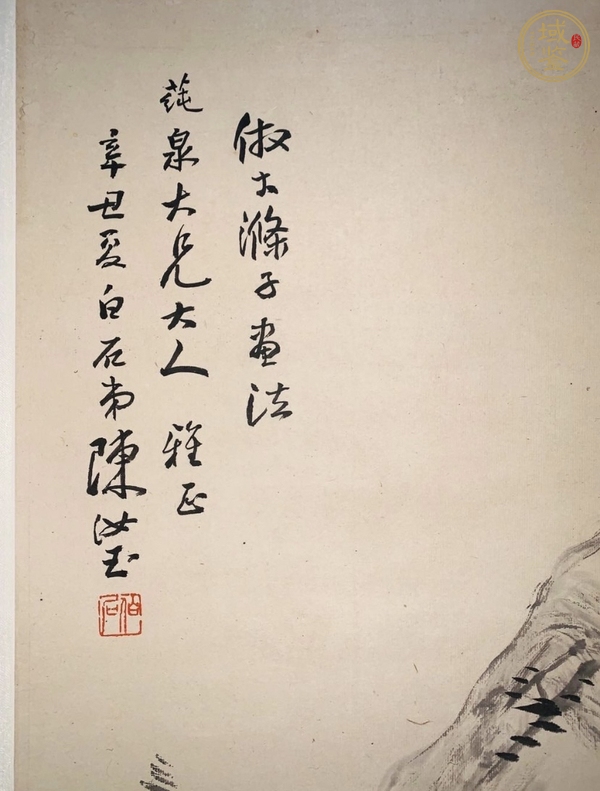 倣大滌子畫法
莼泉大兄大人 雅正
辛丑夏白石弟陳汝玉
伯石
域鑒